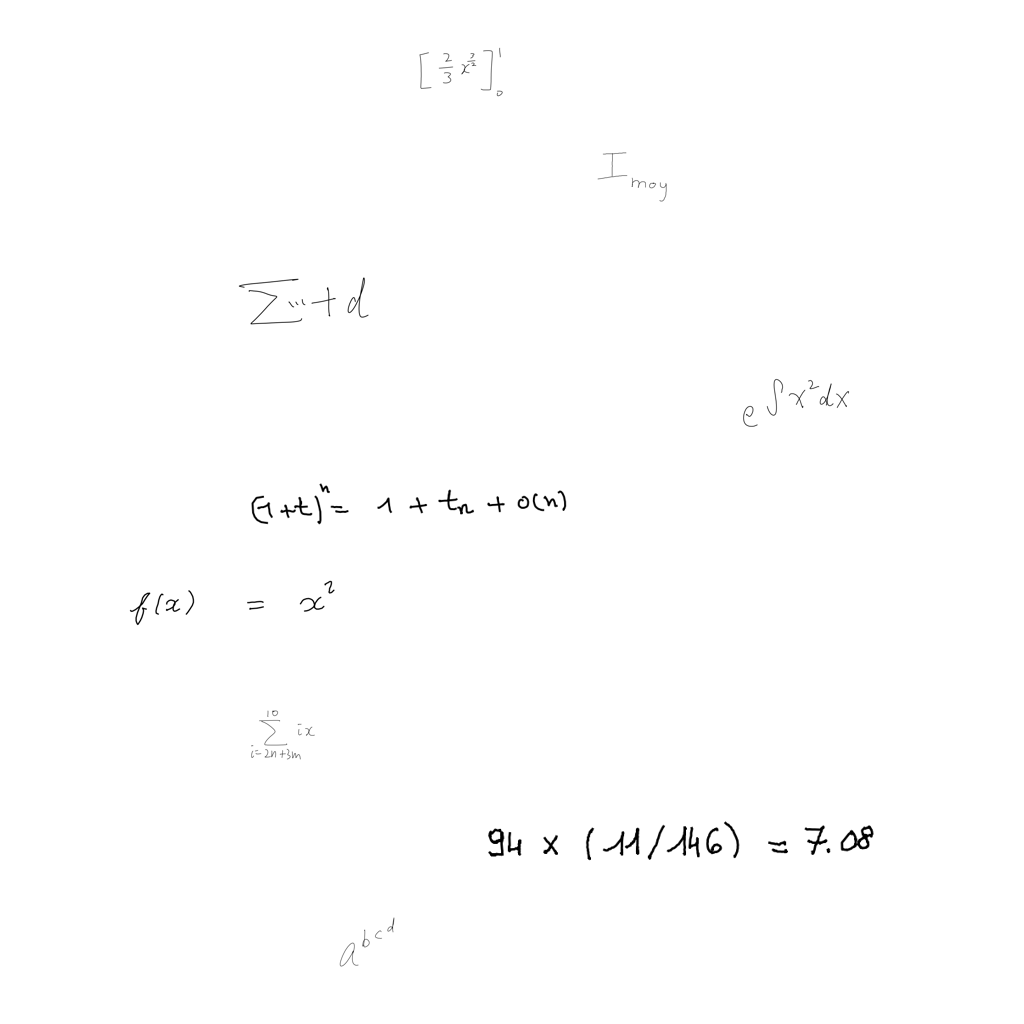 [ 2/3 x^{3/2} ]_0^1
I_{moy}
∑ ... + d
e^{∫x^2dx}
(1+t)^n = 1 + t_n + o(n)
f(x) = x^2
∑_{i=2n+3m}^{10} ix
94 × (11/146) = 7.08
a^{b^{c^d}}